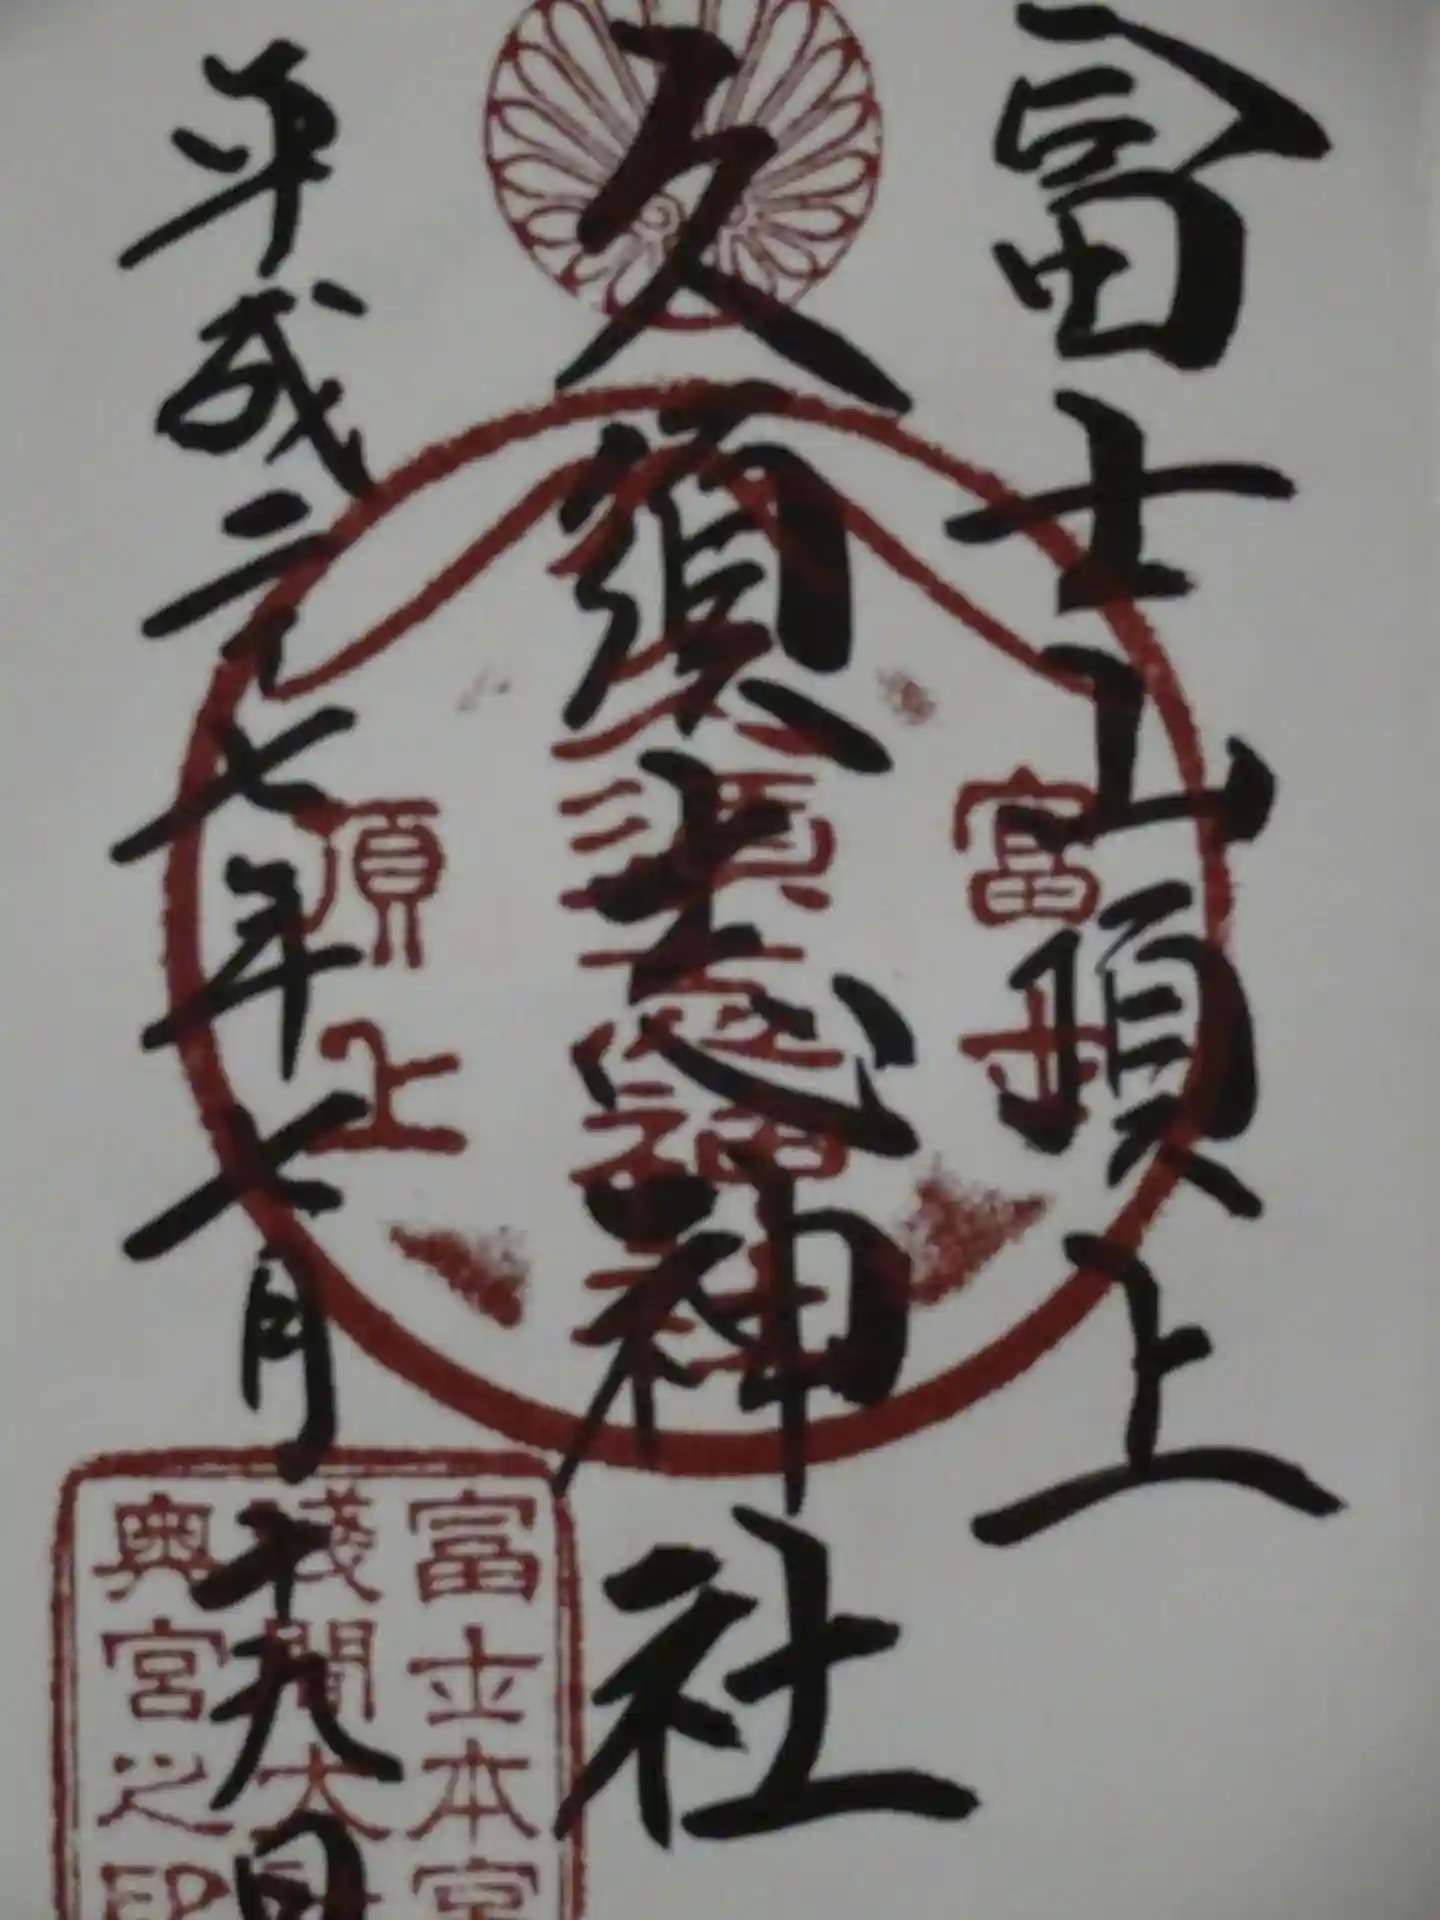 富士山頂上
久須志神社
平成二十七年七月十九日
富士
頂上
富士本宮
浅間大
奥宮之印